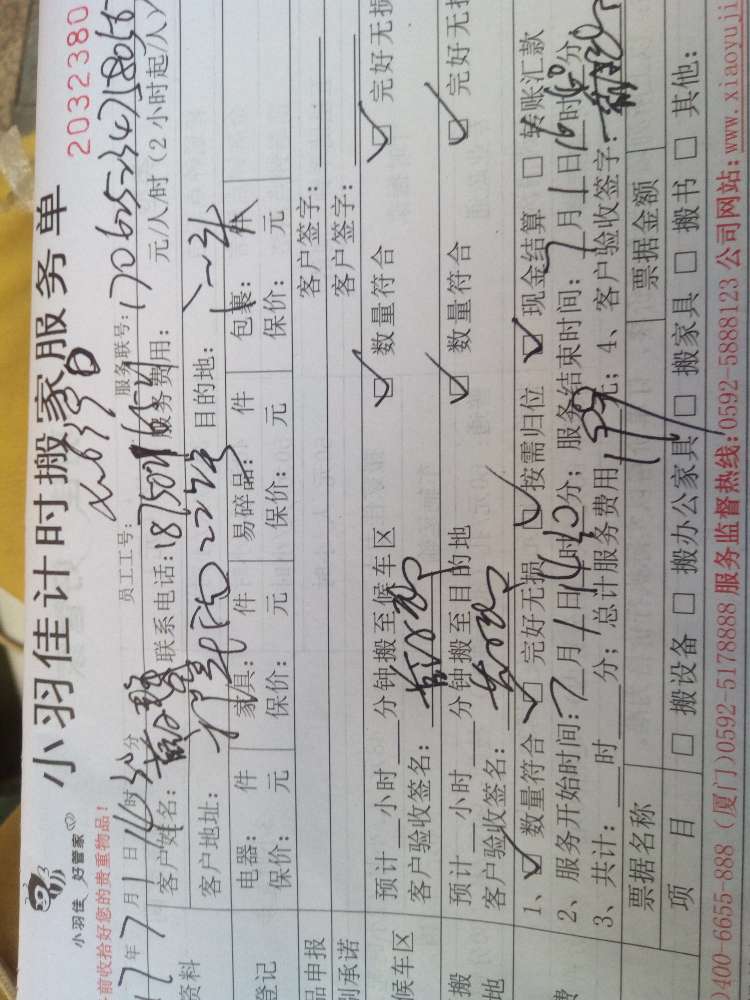 小羽佳计时搬家服务单
2032380
小羽佳 好管家
前收拾好您的贵重物品!
员工工号: 服务联号:
17年7月1日14时30分
客户姓名: 联系电话: 服务费用: 元/人/时(2小时起/人)
资料
客户地址: 目的地:
登记
电器: 件 家具: 件 易碎品: 件 包裹: 件
保价: 元 保价: 元 保价: 元 保价: 元
品申报 客户签字:
别承诺 客户签字:
候车区
预计 小时 分钟搬至候车区 ☑ 数量符合 ☑ 完好无损
客户验收签名:
搬
地
预计 小时 分钟搬至目的地 ☑ 数量符合 ☑ 完好无损
客户验收签名:
费
1、☑ 数量符合 ☑ 完好无损 ☑ 按需归位 ☑ 现金结算 □ 转账汇款
2、服务开始时间:7月1日14时30分; 服务结束时间:7月1日16时30分
3、共计: 时 分; 总计服务费用 元; 4、客户验收签字:
票据名称 票据金额
项目 □ 搬设备 □ 搬办公家具 □ 搬家具 □ 搬书 □ 其他:
)400-6655-888 (厦门)0592-5178888 服务监督热线:0592-5888123 公司网站:www.xiaoyuji